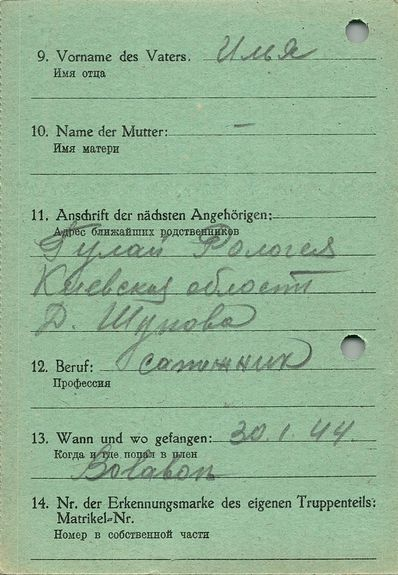 9. Vorname des Vaters. Илья
Имя отца
10. Name der Mutter: —
Имя матери
11. Anschrift der nächsten Angehörigen:
Адрес ближайших родственников
Гулай
Киевская области
Д. Шукова
12. Beruf: сапожник
Профессия
13. Wann und wo gefangen: 30.1.44.
Когда и где попал в плен
14. Nr. der Erkennungsmarke des eigenen Truppenteils:
Matrikel-Nr.
Номер в собственной части